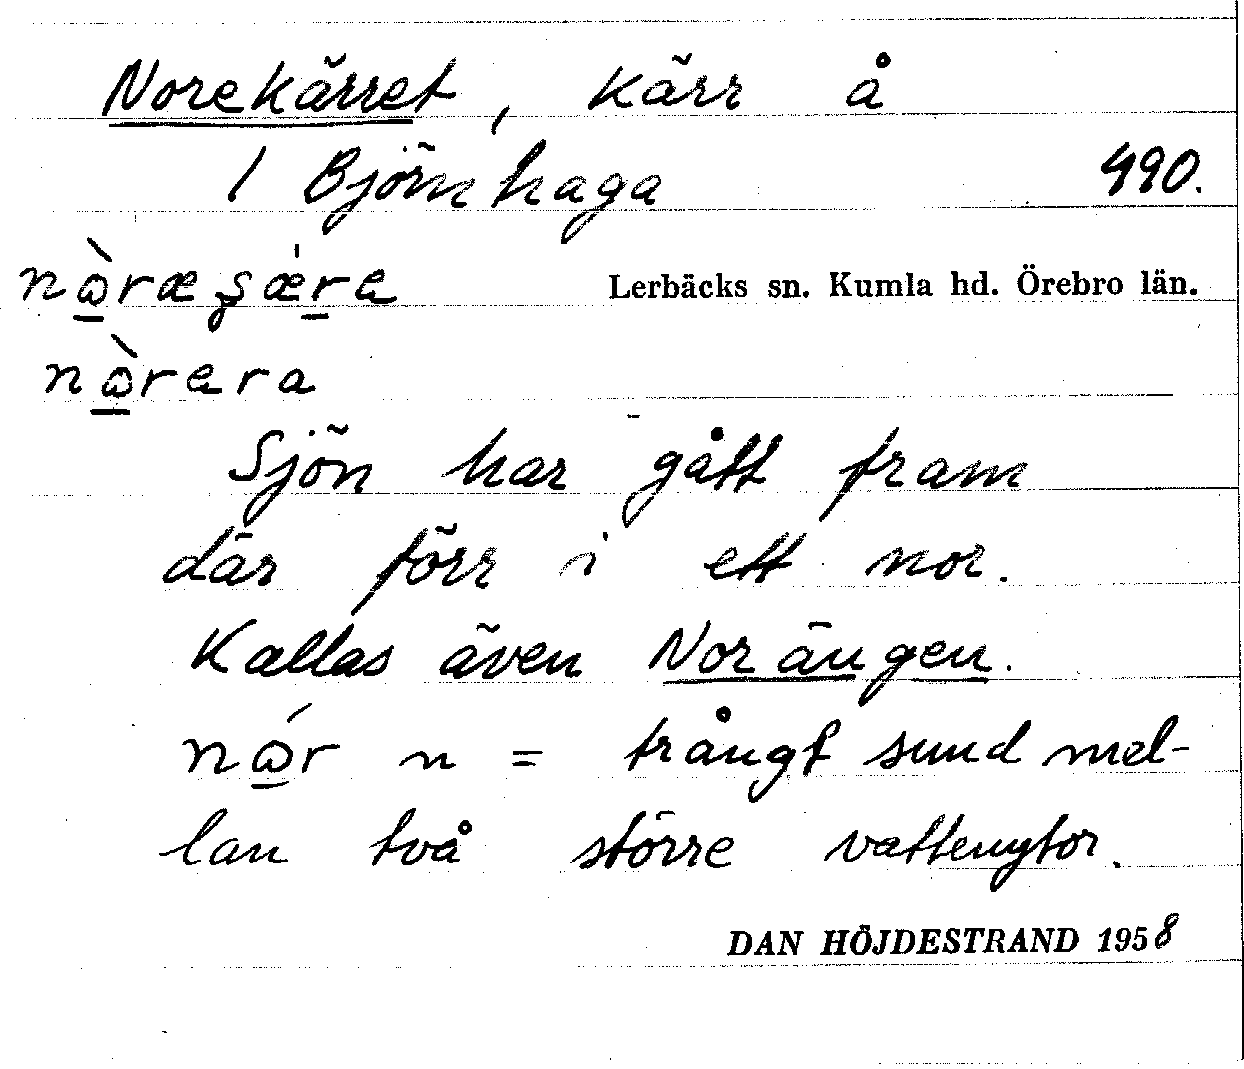 Norekärret, kärr å
1 Björnhaga 490.
Lerbäcks sn. Kumla hd. Örebro län.
Sjön har gått fram
där förr i ett nor.
Kallas även Norängen.
n = trångt sund mel-
lan två större vattenytor.
DAN HÖJDESTRAND 1958